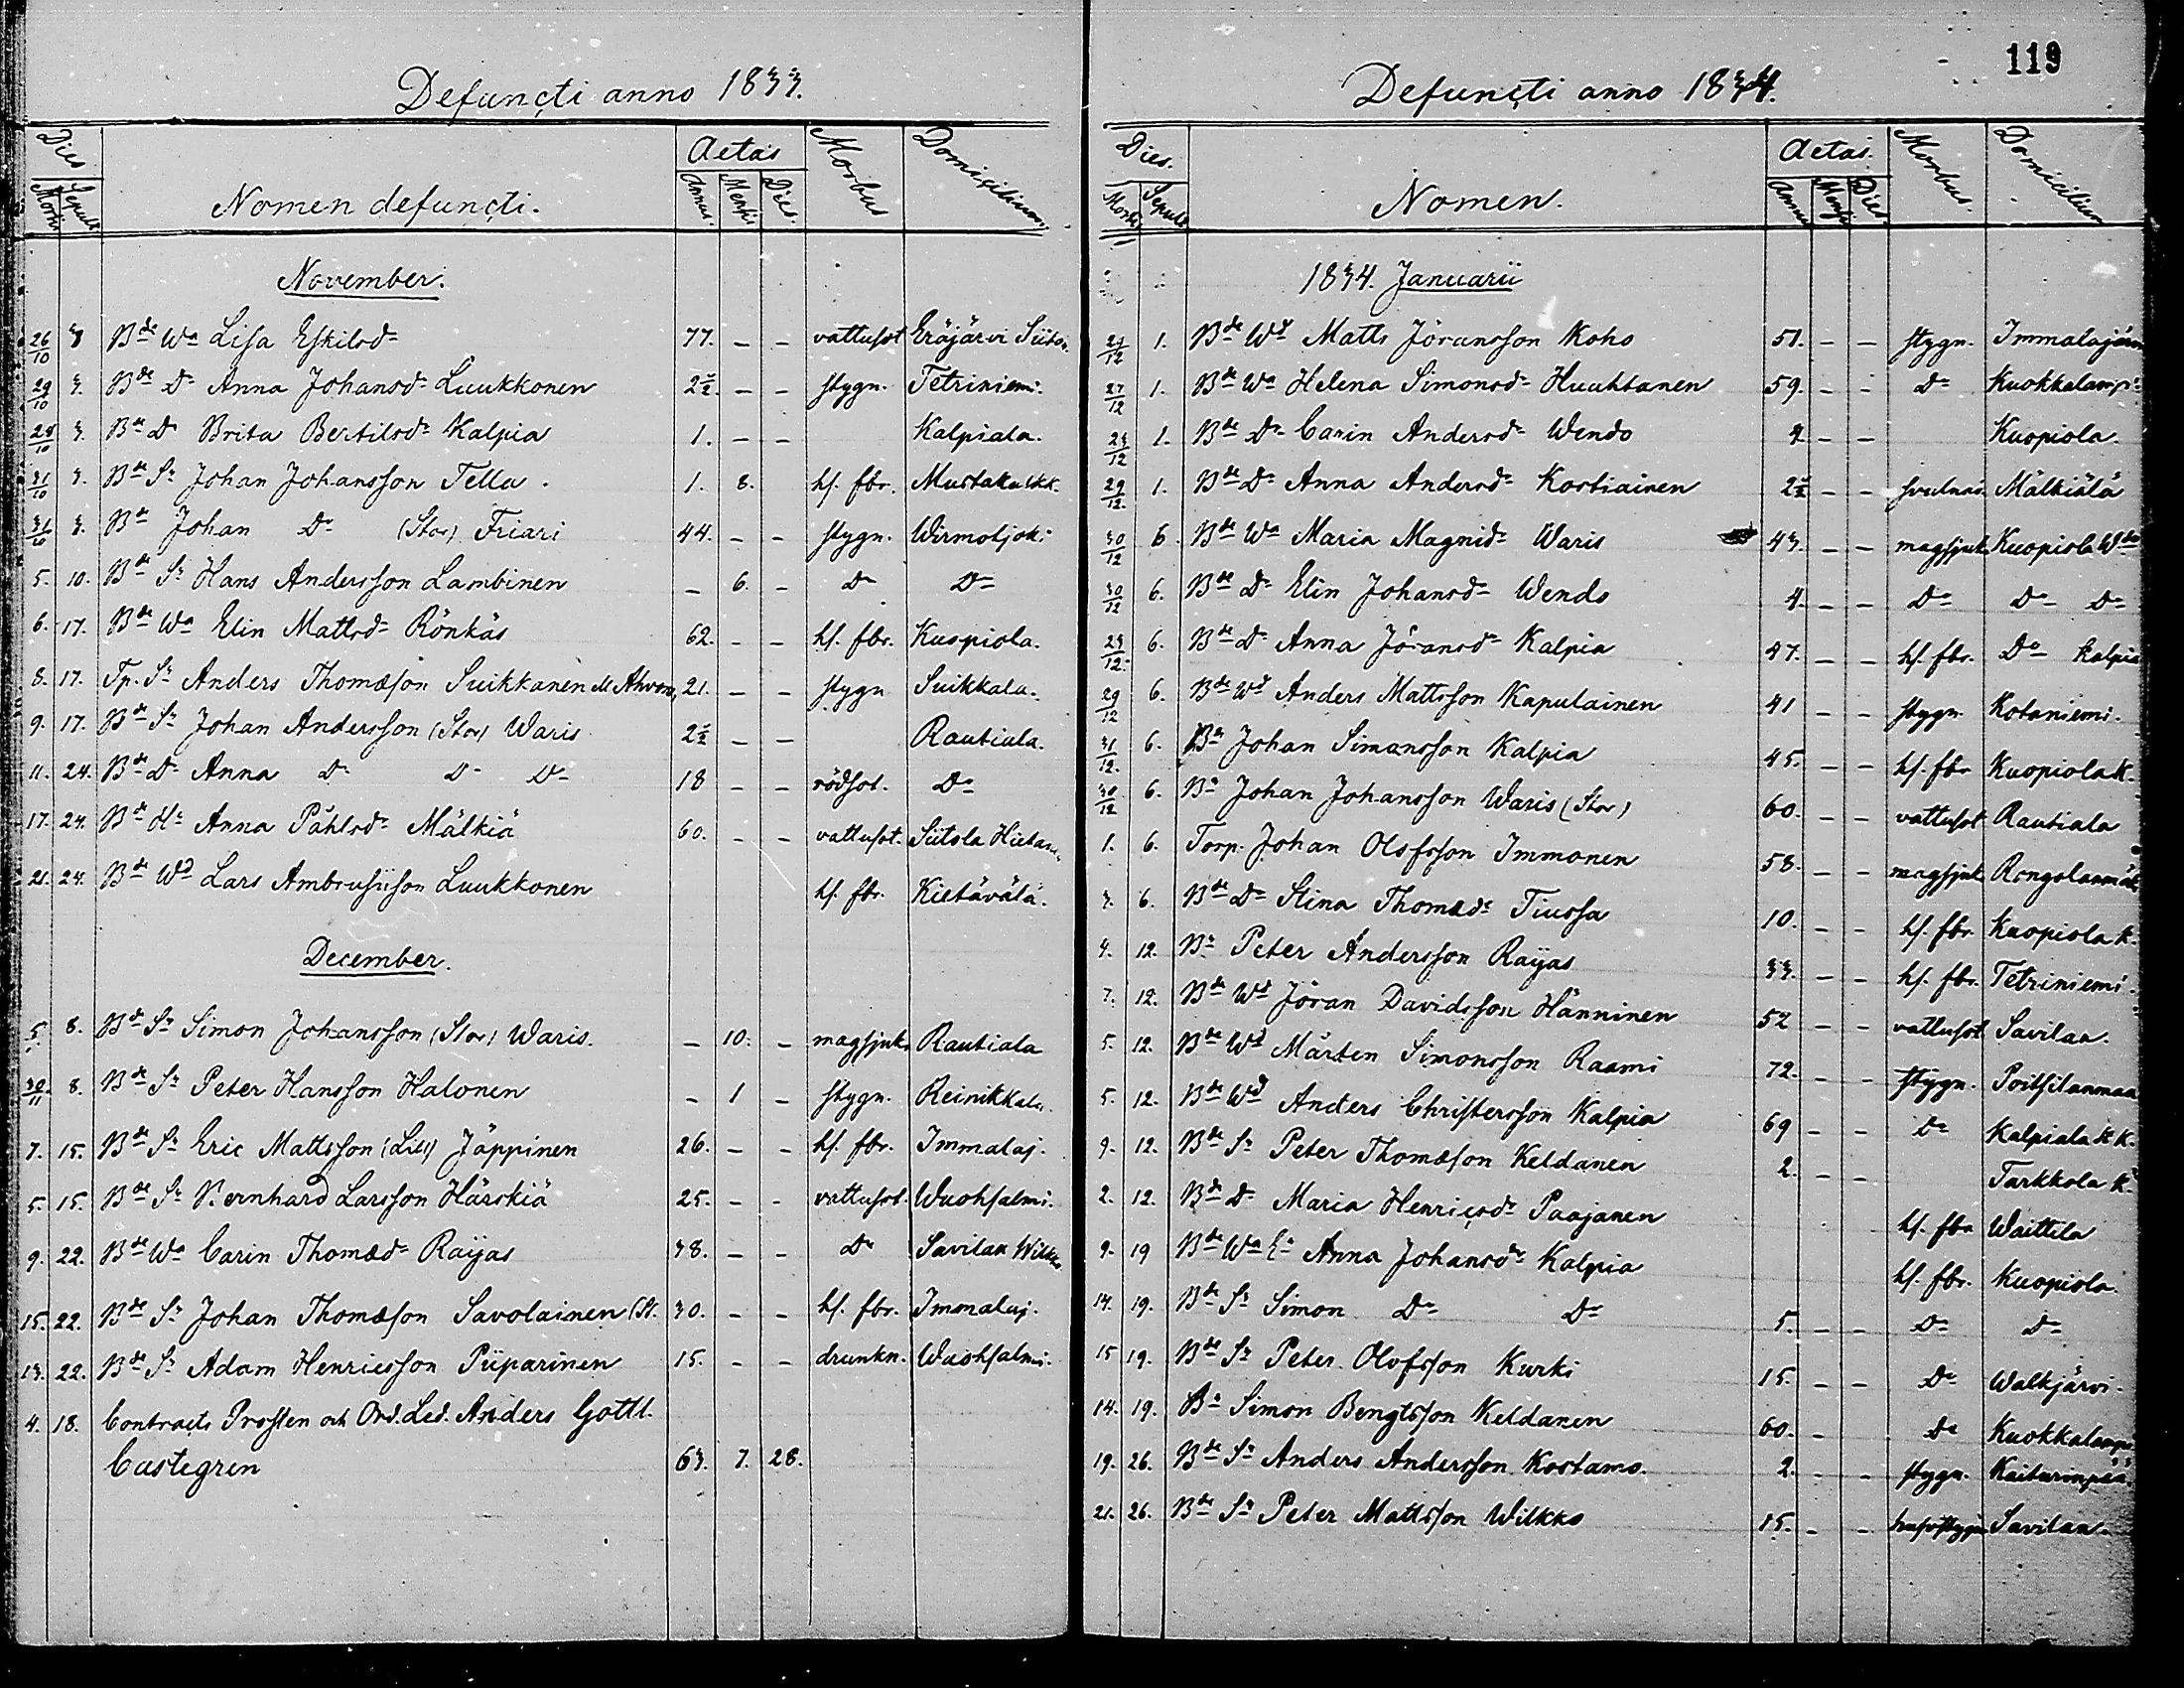 119
Defuncti anno 1833.
Dies
Mortis Sepult Nomen defuncti. Aetas Annus. Mensis Dies. Morbus Domicilium.
November.
26/10 3 Bde Wa Lisa Eskilsdr 77. – – vattusot Eräjärvi
29/10 3. Bde Dr Anna Johansdr Luukkonen 2½. – – stygn. Tetriniemi.
28/10 3. Bde Dr Brita Bertilsdr Kalpia 1. – – Kalpiala.
31/10 3. Bde Sn Johan Johansson Tella. 1. 8. hf. fbr.
31/10 3. Bn Johan Do (Stor) Friari 44. – – stygn. Wirmotjoki
5. 10. Bde Sn Hans Andersson Lambinen – 6. – Do Do
6. 17. Bde Wa Elin Mattsdr Rönkäs 62. – – hf. fbr. Kuopiola.
8. 17. Tp. Sn Anders Thomæson Suikkanen 21. – – stygn Suikkala.
9. 17. Bde Sn Johan Andersson (Stor) Waris 2½ – – Rautiala.
11. 24. Bde Dr Anna Do Do Do 18 – – rödsot. Do
17. 24. Bde Hu Anna Påhlsdr Mälkiä 60. – – vattusot. Siitola
21. 24. Bde Wd Lars Ambrusiison Luukkonen hf. fbr. Kietävälä.
December.
5. 8. Bde Sn Simon Johansson (Stor) Waris. – 10. – magsjuk. Rautiala
30/11 8. Bde Sn Peter Hansson Halonen – 1 – stygn. Reinikkala.
7. 15. Bde Sn Eric Mattsson (Lill) Jäppinen 26. – – hf. fbr. Immalaj.
5. 15. Bde Sn Bernhard Larsson Härskiä 25. – – vattusot. Wuohsalmi.
9. 22. Bde Wa Carin Thomædr Raijas 38. – – Do Savilax
15. 22. Bde Sn Johan Thomæson Savolainen (St. 30. – – hf. fbr. Immalaj.
13. 22. Bde Sn Adam Henricsson Piiparinen 15. – – drunkn. Wuohsalmi.
4. 18. Contracts Prosten och Ord. Led. Anders Gottl.
Castegren 63. 7. 28.
Defuncti anno 1834.
Dies.
Mortis Sepult Nomen. Aetas. Annus Mensis Dies Morbus. Domicilium
1834. Januarii
1. Bde Wd Matts Jöransson Koho 51. – – stygn. Immalajärvi
27/12 1. Bde Wa Helena Simonsdr Huuhtanen 59. – – Do Kuokkalampi
23/12 1. Bde Dr Carin Andersdr Wendo – – Kuopiola.
29/12. 1. Bde Dr Anna Andersdr Kostiainen 2½ – – Mälkiälä
30/12 6. Bde Wa Maria Magnidr Waris 43. – – magsjuk. Kuopiola
30/12 6. Bde Dr Elin Johansdr Wendo 4. – – Do Do Do
23/12. 6. Bde Dr Anna Jöransdr Kalpia 47. – – hf. fbr. Do Kalpia
29/12 6. Bde Wd Anders Mattsson Kapulainen 41 – – stygn. Kotaniemi.
31/12. 6. Bn Johan Simonsson Kalpia 45. – – hf. fbr Kuopiola K.
30/12 6. Bn Johan Johansson Waris (Stor) 60. – – vattusot Rautiala
1. 6. Torp. Johan Olofsson Immonen 58. – – magsjuk.
3. 6. Bde Dr Stina Thomædr Tiussa 10. – – hf. fbr Kuopiola K.
4. 12. Bn Peter Andersson Raijas 33. – – hf. fbr. Tetriniemi.
7. 12. Bde Wd Jöran Davidsson Hänninen 52 – – vattusot Savilax.
5. 12. Bde Wd Mårten Simonsson Raami 72. – – stygn. Poitsilanmaa
5. 12. Bde Wd Anders Christersson Kalpia 69 – – Do Kalpiala K K.
9. 12. Bde Sn Peter Thomæson Keldanen 2. – – Tarkkola K.
2. 12. Bde Dr Maria Henricsdr Paajanen hf. fbr Waittila
9. 19 Bde Wa Ea Anna Johansdr Kalpia hf. fbr. Kuopiola.
14. 19. Bde Sn Simon Do Do 5. – – Do Do
15 19. Bde Sn Peter Olofsson Kurki 15. – – Do Walkjärvi.
14. 19. Bn Simon Bengtsson Keldanen 60. – Do Kuokkalampi
19. 26. Bde Sn Anders Andersson Kostamo. 2. – – stygn. Kaiturinpää.
21. 26. Bde Sn Peter Mattsson Wilkko 15. – – Savilax.